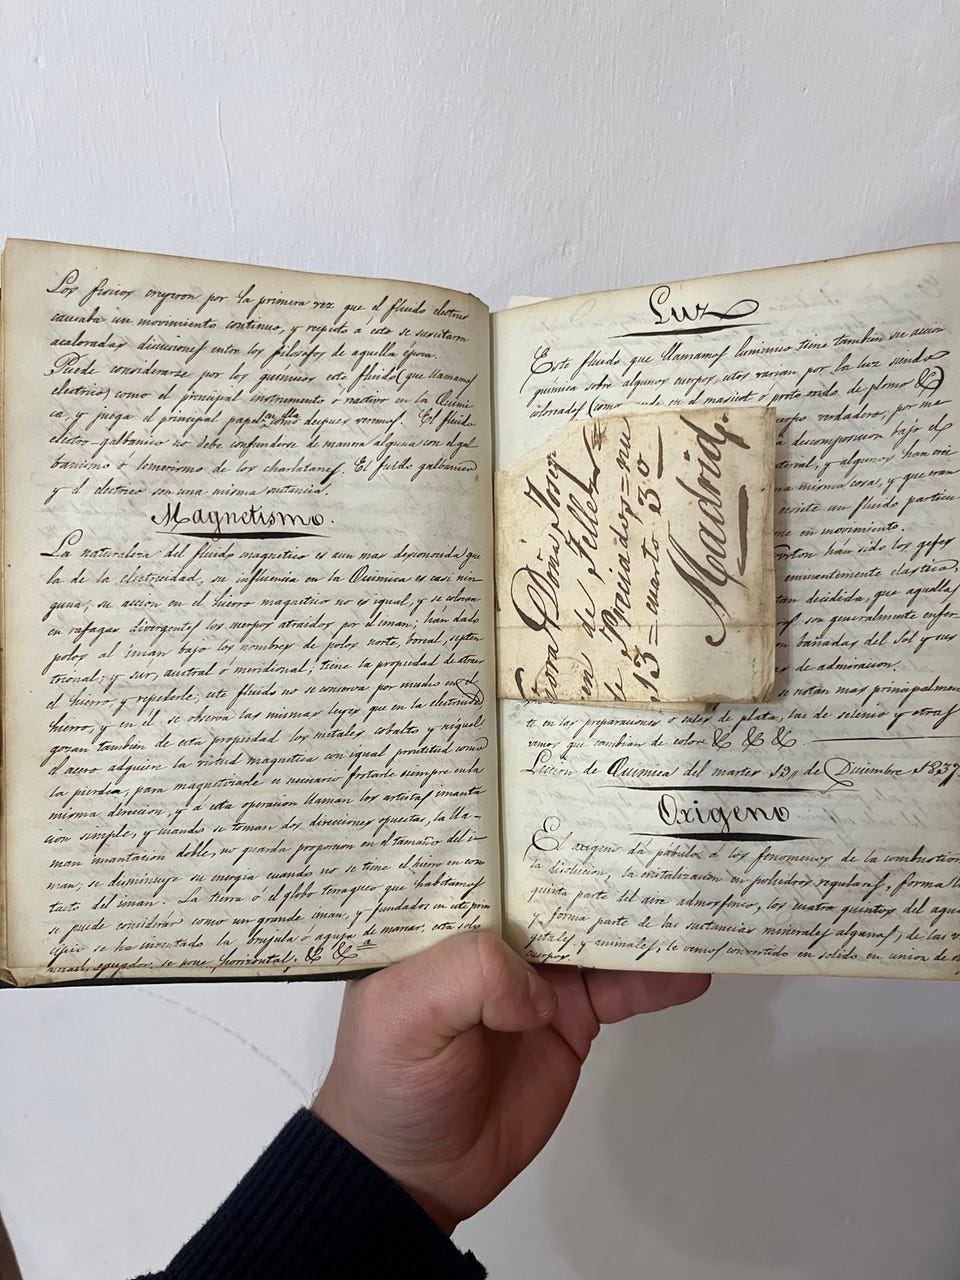 Los fisicos creyeron por la primera vez que el fluido electrico
causaba un movimiento continuo, y respeto a esto se suscitaron
acaloradas discusiones entre los filosofos de aquella época.
Puede considerarse por los quimicos este fluido (que llamamos
electrico) como el principal instrumento ó reactivo en la Quimi
ca, y juega el principal papel en ella como despues veremos. El fluido
electro-galbanico no debe confundirse de manera alguna con el gal
banismo ó
de los charlatanes. El fluido galbanico
y el electrico son una misma sustancia.
Magnetismo.
La naturaleza del fluido magnetico es aun mas desconocida que
la de la electricidad, su influencia en la Quimica es casi nin-
guna; su accion en el hierro magnetico no es igual, y se colocan
en rafagas divergentes los cuerpos atraidos por el iman; han dado
polos al iman bajo los nombres de polos norte, boreal, septen
trional; y sur, austral ó meridional; tiene la propiedad de atraer
el hierro, y repelerle; este fluido no se conserva por mucho en el
hierro, y en el se observa las mismas leyes que en la electricidad
gozan tambien de esta propiedad los metales cobalto y niquel
el acero adquiere la virtud magnetica con igual prontitud como
la pierde, para magnetizarle es necesario frotarle siempre en la
misma direcion, y á esta operacion llaman los artistas imanta
cion simple, y cuando se toman dos direciones opuestas, la lla-
man imantacion doble, no guarda proporcion en el tamaño del i-
man; se disminuye su energia cuando no se tiene el hierro en con
tacto del iman. La tierra ó el globo terraqueo que habitamos
se puede considerar como un grande iman, y fundados en este prin
cipio se ha inventado la brujula ó aguja de marear, esta sobre
el ecuador, se pone horizontal, & &a
Luz
Este fluido que llamamos luminico tiene tambien su accion
quimica sobre algunos cuerpos, estos varian por la luz siendo
coloriados (como sucede en el masicot ó proto oxido de plomo &)
cuerpo verdadero; por me
descomposicion bajo el
y algunos han crei
na misma cosa, y que eran
existe un fluido particu
ne en movimiento.
han sido los gefes
eminentemente elastica,
tan decidida, que aquellos
son generalmente enfer-
bañadas del Sol y sus
de admiracion.
se notan mas principalmen
te en las preparaciones ó sales de plata, las de selenio y otras
vemos que cambian de color & & &.
Leccion de Quimica del martes 19 de Diciembre 1837
Oxigeno
El oxigeno da pábulo á los fenomenos de la combustion
la disolucion, la cristalizacion en poliedros regulares, forma la
quinta parte del aire admorferico, los cuatro quintos del agua
y forma parte de las sustancias minerales algunas, de las ve
getales y animales, le vemos convertido en solido en union de
cuerpos.
ñora Doña Jose
de Teller
de Preciados = nu
13 = cuarto 3º
Madrid.